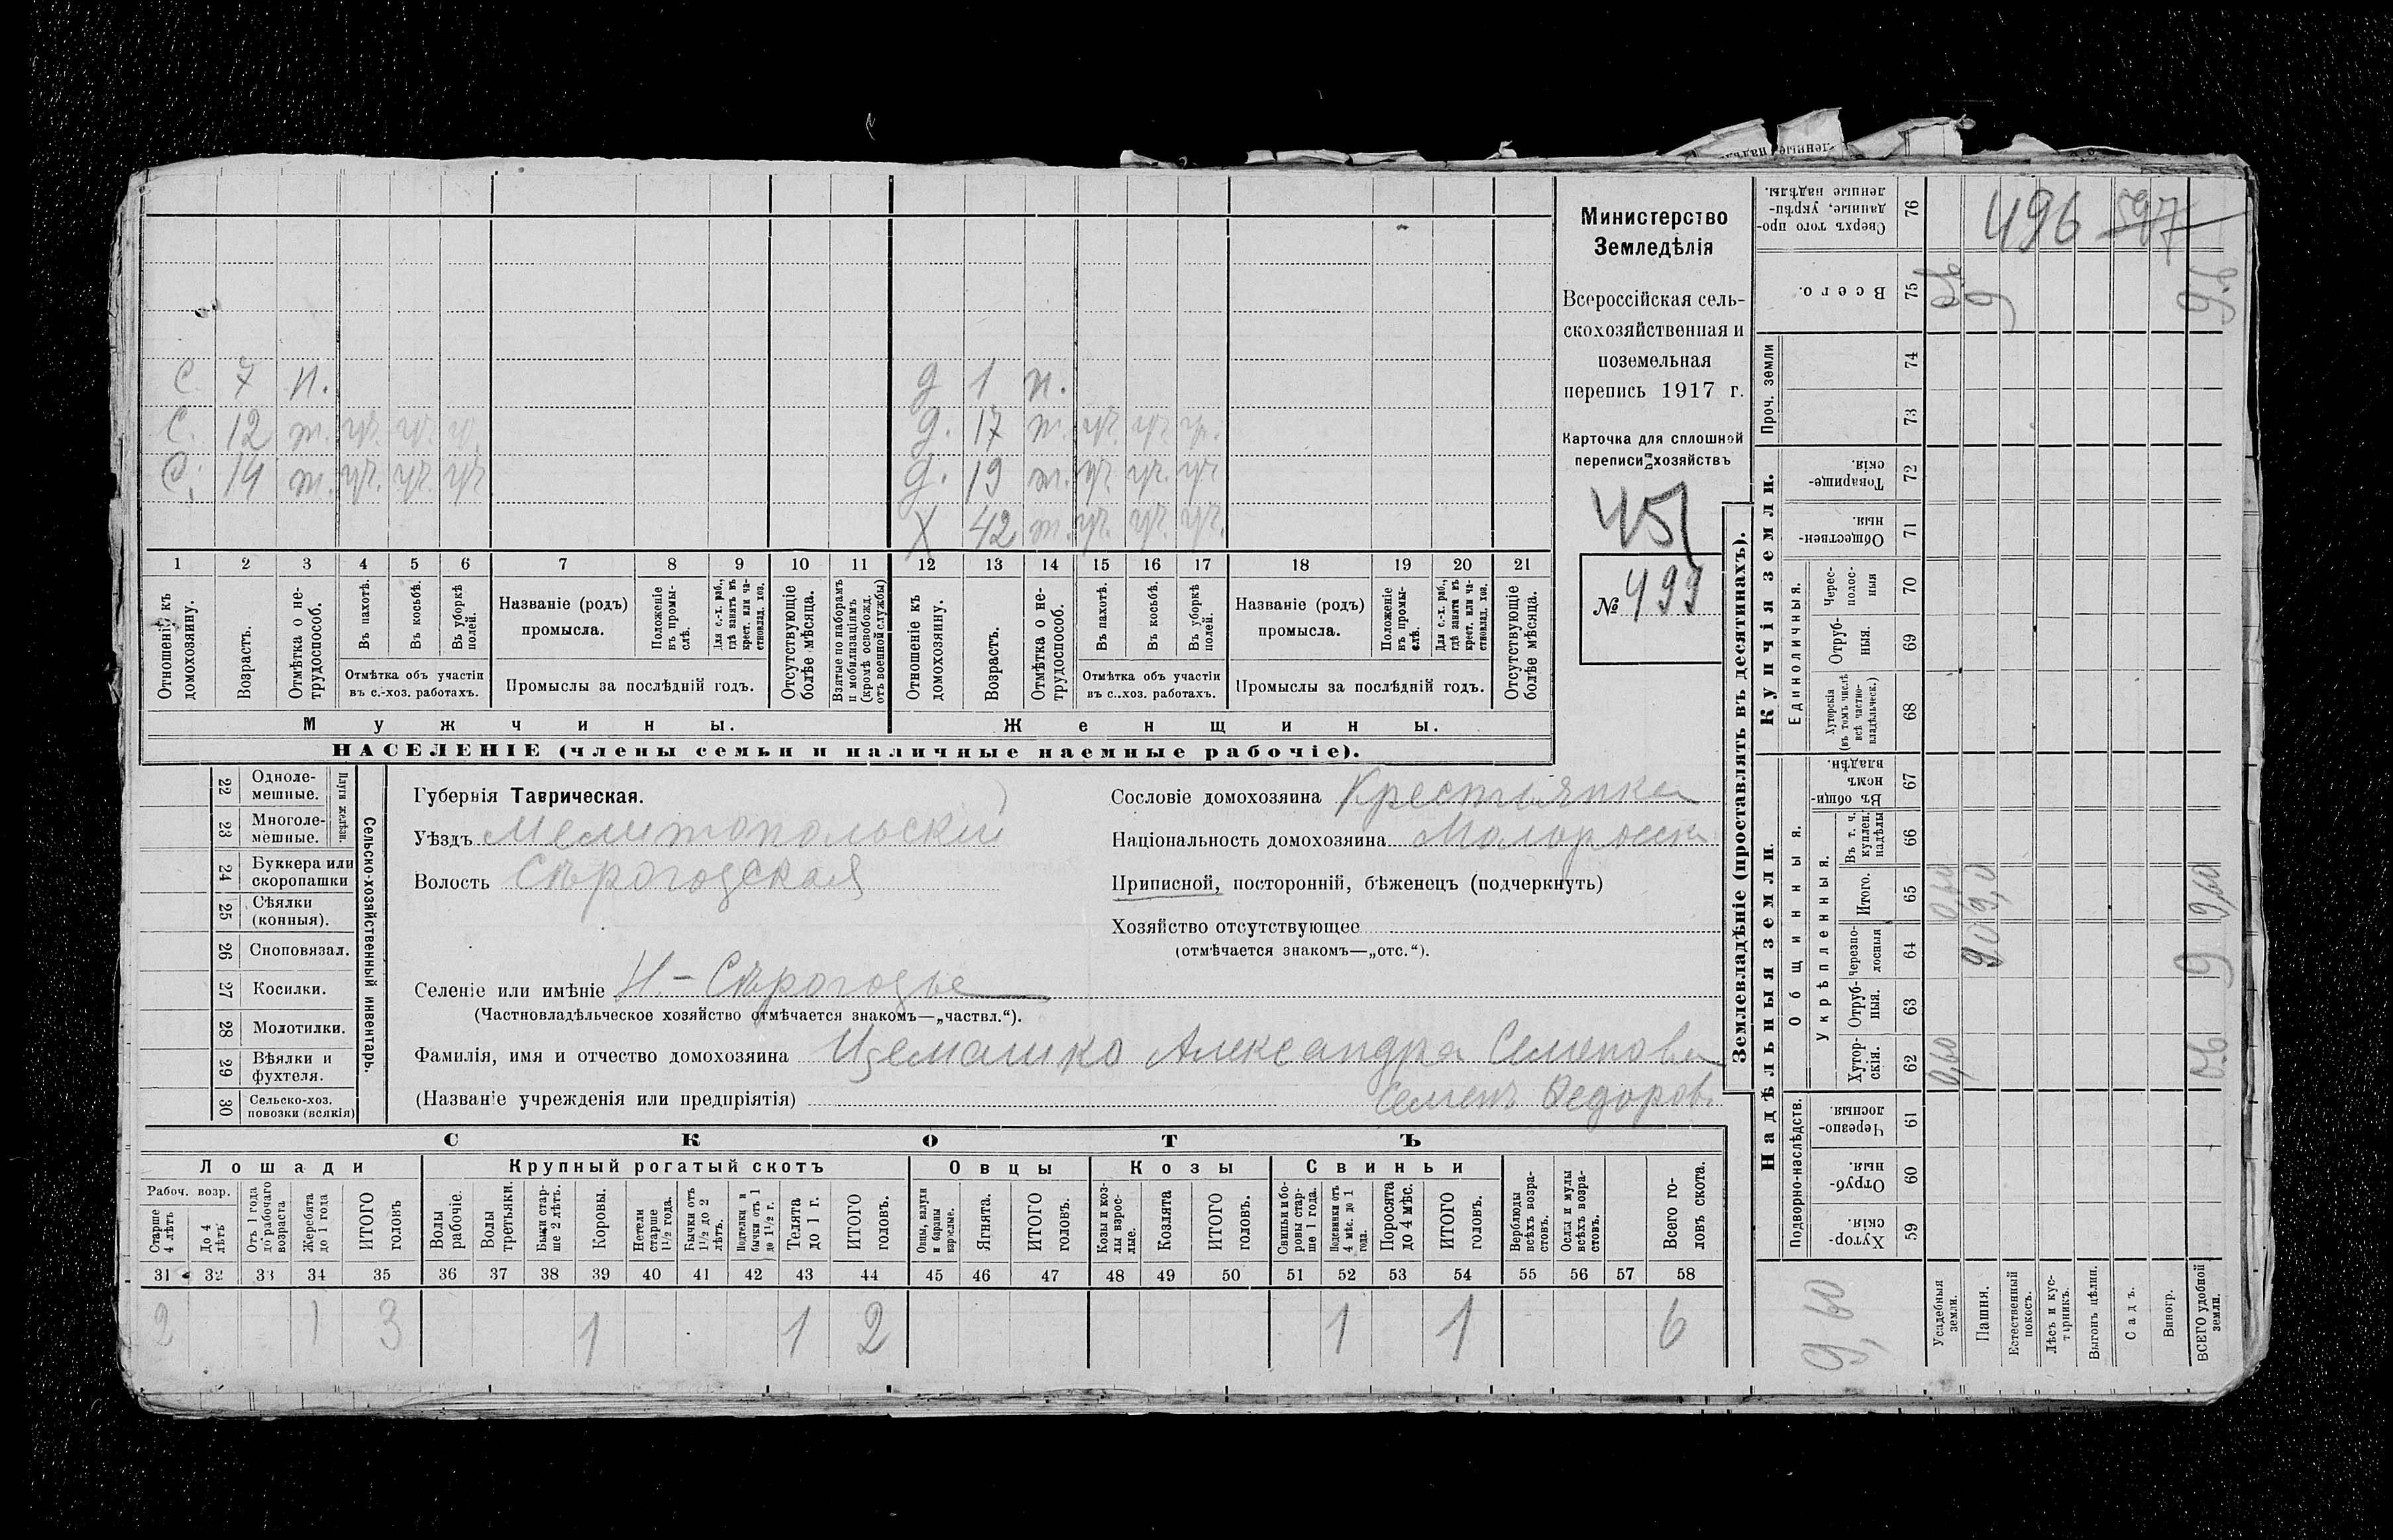 Министерство
Земледѣлія
Всероссійская сель-
скохозяйственная и
поземельная
перепись 1917 г.
Карточка для сплошной
переписи хозяйствъ
45
№ 499
С 7 н. д 1 н.
С. 12 т. уч. уч. уч. д. 17 т. уч. уч. уч.
С. 14 т. уч. уч. уч. д. 19 т. уч. уч. уч.
Х 42 т. уч. уч. уч.
1 2 3 4 5 6 7 8 9 10 11 12 13 14 15 16 17 18 19 20 21
Отношеніе къ домохозяину.
Возрастъ.
Отмѣтка о не-трудоспособ.
Въ пахотѣ.
Въ косьбѣ.
Въ уборкѣ полей.
Отмѣтка объ участіи
въ с.-хоз. работахъ.
Названіе (родъ)
промысла.
Положеніе въ промы-слѣ.
Для с.-х. раб., гдѣ занятъ въ крест. или ча-стновлад. хоз.
Промыслы за послѣдній годъ.
Отсутствующіе болѣе мѣсяца.
Взятые по наборамъ и мобилизаціямъ (кромѣ освобожд. отъ военной службы)
Отношеніе къ домохозяину.
Возрастъ.
Отмѣтка о не-трудоспособ.
Въ пахотѣ.
Въ косьбѣ.
Въ уборкѣ полей.
Отмѣтка объ участіи
въ с..хоз. работахъ.
Названіе (родъ)
промысла.
Положеніе въ промы-слѣ.
Для с.-х. раб., гдѣ занята въ крест. или ча-стновлад. хоз.
Промыслы за послѣдній годъ.
Отсутствующіе болѣе мѣсяца.
Мужчины. Женщины.
НАСЕЛЕНІЕ (члены семьи и наличные наемные рабочіе).
22 Одноле-мешные.
23 Многоле-мешные.
Плуги желѣзн.
24 Буккера или скоропашки
25 Сѣялки (конныя).
26 Сноповязал.
27 Косилки.
28 Молотилки.
29 Вѣялки и фухтеля.
30 Сельско-хоз. повозки (всякія)
Сельско-хозяйственный инвентарь.
Губернія Таврическая.
Уѣздъ Мелитопольскій
Волость Сѣрогозская
Сословіе домохозяина Крестьянка
Національность домохозяина Малоросска
Приписной, посторонній, бѣженецъ (подчеркнуть)
Хозяйство отсутствующее
(отмѣчается знакомъ—„отс.“).
Селеніе или имѣніе Н.-Сѣрогозье
(Частновладѣльческое хозяйство отмѣчается знакомъ—„частвл.“).
Фамилія, имя и отчество домохозяина Александра Семенова
(Названіе учрежденія или предпріятія) Семенъ Федоровъ
СКОТЪ
Лошади Крупный рогатый скотъ Овцы Козы Свиньи
Рабоч. возр.
Старше 4 лѣтъ
До 4 лѣтъ
Отъ 1 года до рабочаго возраста
Жеребята до 1 года
ИТОГО головъ
Волы рабочіе.
Волы третьяки.
Быки стар-ше 2 лѣтъ.
Коровы.
Нетели старше 1½ года.
Бычки отъ 1½ до 2 лѣтъ.
Подтелки и бычки отъ 1 до 1½ г.
Телята до 1 г.
ИТОГО головъ.
Овцы, валухи и бараны взрослые.
Ягнята.
ИТОГО головъ.
Козы и коз-лы взрос-лые.
Козлята
ИТОГО головъ.
Свиньи и бо-ровы стар-ше 1 года.
Подсвинки отъ 4 мѣс. до 1 года.
Поросята до 4 мѣс.
ИТОГО головъ.
Верблюды всѣхъ возра-стовъ.
Ослы и мулы всѣхъ возра-стовъ.
Всего го-ловъ скота.
31 32 33 34 35 36 37 38 39 40 41 42 43 44 45 46 47 48 49 50 51 52 53 54 55 56 57 58
2 1 3 1 1 2 1 1 6
Землевладѣніе (проставлять въ десятинахъ).
496 597
Сверхъ того про-данные, укрѣп-ленные надѣлы. 76
Всего. 75 9
Проч. земли 74
73
Купчія земли.
Товарище-скія. 72
Обществен-ныя 71
Единоличныя.
Черес-полос-ныя 70
Отруб-ныя. 69
Хуторскія (въ томъ числѣ всѣ частно-владѣльческ.) 68
Надѣльныя земли.
Общинныя.
Въ общин-номъ владѣн. 67
Укрѣпленныя.
Въ т. ч. куплен. надѣлы 66
Итого. 65 0,60 9,0 9,60
Черезпо-лосныя 64 9,0 9
Отруб-ныя. 63
Хутор-скія. 62 0,60
Подворно-наслѣдств.
Черезпо-лосныя. 61
Отруб-ныя. 60
Хутор-скія. 59
9,60
Усадебныя земли.
Пашня.
Естественный покосъ.
Лѣсъ и кус-тарникъ.
Выгонъ цѣлин.
Садъ.
Виногр.
ВСЕГО удобной земли.